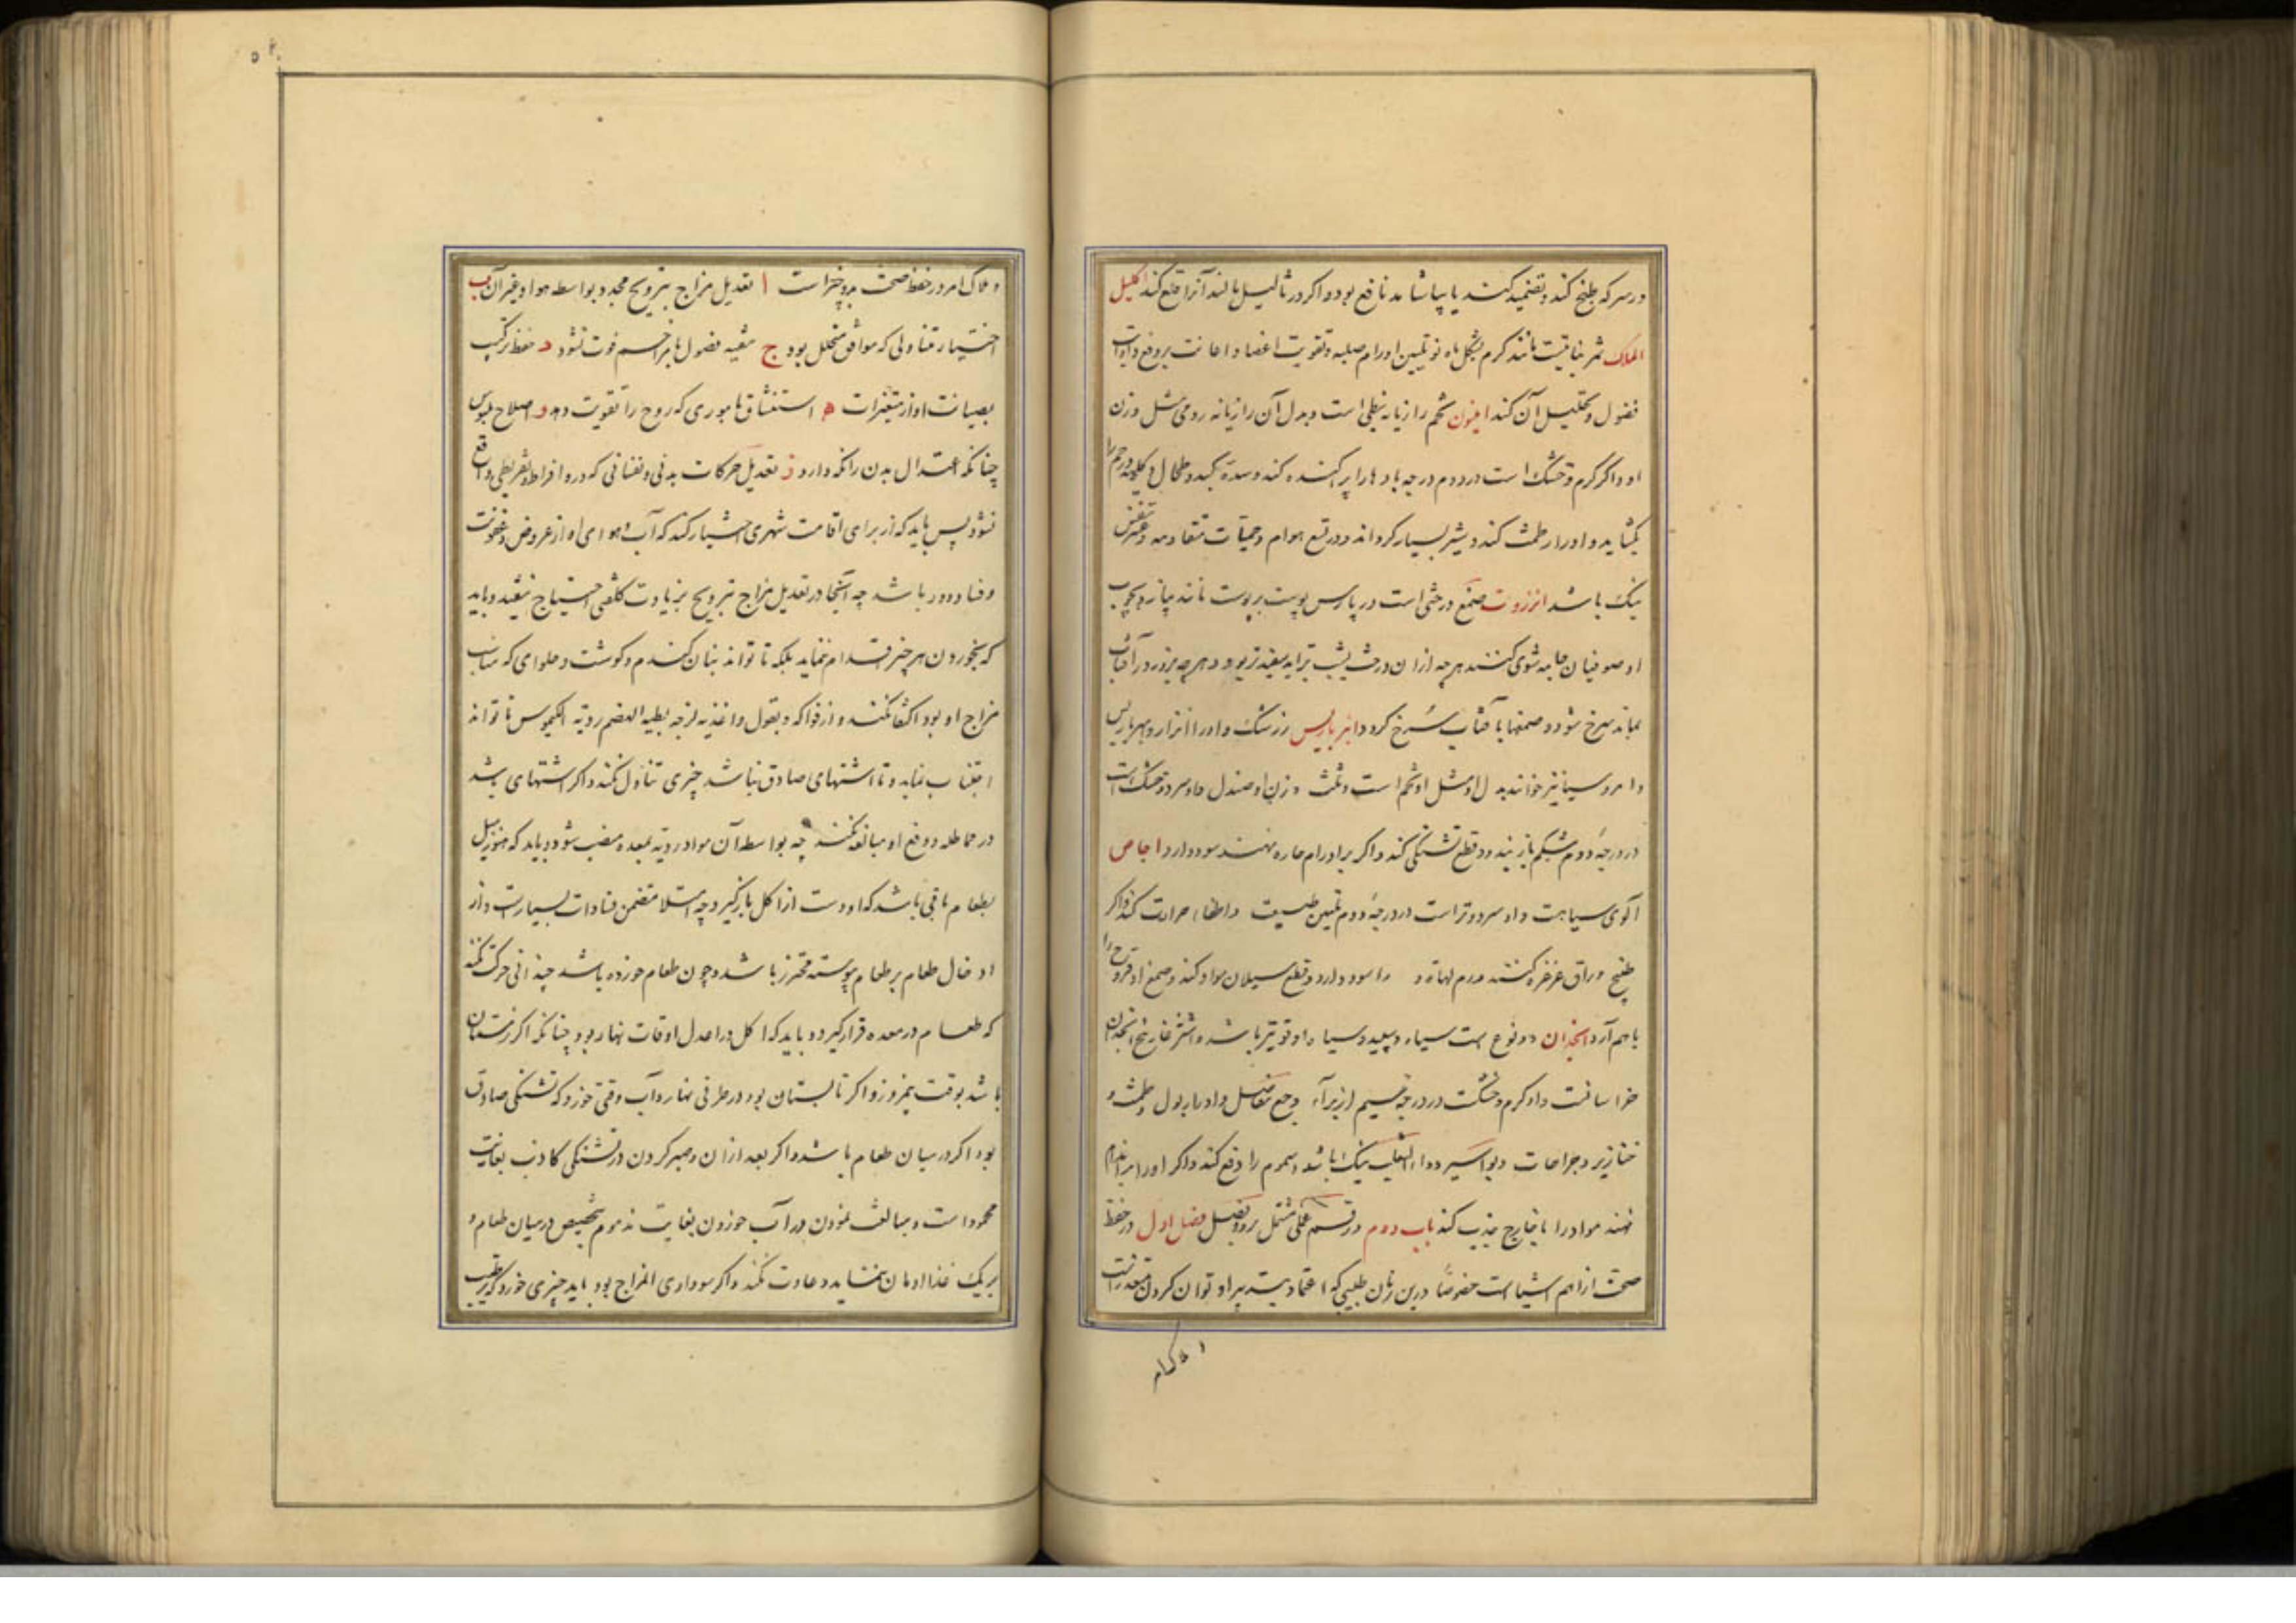 در سرکه طبخ کند و تضمید کنند یا بیاشامند نافع بود و اگر در ثآلیل مالند آنرا قلع کند اکلیل
الملک ثمر نباتیست مانند کرم بشکل ماه نو تلیین اورام صلبه و تقویت اعضا و اعانت بر دفع
فضول و تحلیل آن کند انیسون تخم رازیانه نبطی است و بدل آن رازیانه رومی مثل وزن
او و اگر گرم و خشک است در دوم درجه بادها را پراکنده کند و سده کبد و طحال و کلیه و رحم را
بگشاید و ادرار طمث کند و شیر بسیار گرداند و در لسع هوام و حمیات متقادمه و عسر نفس
نیک باشد انزروت صمغ درختی است در پارس پوست بر پوست مانند پیاز و بچوب
او صوفیان جامه شوی کنند هرچه از ان درخت بشب برآید سفیدتر بود و هرچه بروز در آفتاب
بماند سرخ شود و صمغها بآفتاب سرخ گردد انبرباریس زرشک و او را
و امروسیا نیز خوانند بدل او مثل او تخم است و ثلث وزن او صندل و او سرد و خشک است
در درجهٔ دوم شکم باز بندد و قطع تشنگی کند و اگر بر اورام حاره نهند سود دارد اجاص
آلوی سیاهست و او سرد و تر است در درجهٔ دوم تلیین طبیعت و اطفاء حرارت کند و اگر
طبیخ وراق غرغره کنند ورم لهاة و را سود دارد و قطع سیلان مواد کند و صمغ او قروح را
باهم آرد انجدان دو نوع است سیاه و سپید و سیاه او قویتر باشد و اشترغاز بیخ انجدان
خراسانست و او گرم و خشکست در درجهٔ سیم از برآء وجع مفاصل و ادرار بول و طمث و
خنازیر و جراحات و بواسیر و داء الثعلب نیک باشد و سموم را دفع کند و اگر او را بر اندام
نهند مواد را بخارج جذب کند باب دوم در قسم عملی مشتمل بر دو فصل فصل اول در حفظ
صحت از اهم اشیا است خصوصا درین زمان طبیبی که اعتماد بتدبیر او توان کردن متعذر است
و ملاک امر در حفظ صحت بر و چیز است ا تعدیل مزاج بترویح مجدد بواسطه هوا و غیر آن ب
اختیار متناولی که موافق متحلل بود ج تنقیه فضول تا مزاحم قوت نشود د حفظ ترکیب
بصیانت او از متغیرات ه استنشاق باموری که روح را تقویت دهد و اصلاح ملبوس
چنانکه اعتدال بدن را نگه دارد ز تعدیل حرکات بدنی و نفسانی که در و افراط و تفریطی واقع
نشود پس باید که از برای اقامت شهری اختیار کند که آب و هوای او از عروض عفونت
و فساد دور باشد چه آنجا در تعدیل مزاج بترویح بزیادت کلفتی احتیاج نیفتد و باید
که بخوردن هر چیز اقدام ننماید بلکه تا تواند بنان گندم و گوشت و حلوایی که مناسب
مزاج او بود اکتفا کند و از فواکه و بقول و اغذیه لزجه بطیه الهضم ردیه الکیموس تا تواند
اجتناب نماید و تا اشتهای صادق نباشد چیزی تناول نکند و اگر اشتهای باشد
در مماطله و دفع او مبالغه نکند چه بواسطه آن مواد ردیه بمعده منصب شود و باید که هنوز میل
بطعام باقی باشد که او دست از اکل باز گیرد چه امتلا متضمن فسادات بسیار است و از
ادخال طعام بر طعام پیوسته محترز باشد و چون طعام خورده باشد چندانی حرکت کند
که طعام در معده قرار گیرد و باید که اکل در اعدل اوقات نهار بود چنانکه اگر زمستان
باشد بوقت نیمروز و اگر تابستان بود در طرفی نهار و آب وقتی خورد که تشنگی صادق
بود اگر در میان طعام باشد و اگر بعد از ان و صبر کردن در تشنگی کاذب بغایت
محمود است و مبالغت نمودن در آب خوردن بغایت مذموم بتخصیص در میان طعام و
بریک غذا ادمان ننماید و عادت نکند و اگر سوداوی المزاج بود باید چیزی خورد که ترطیب